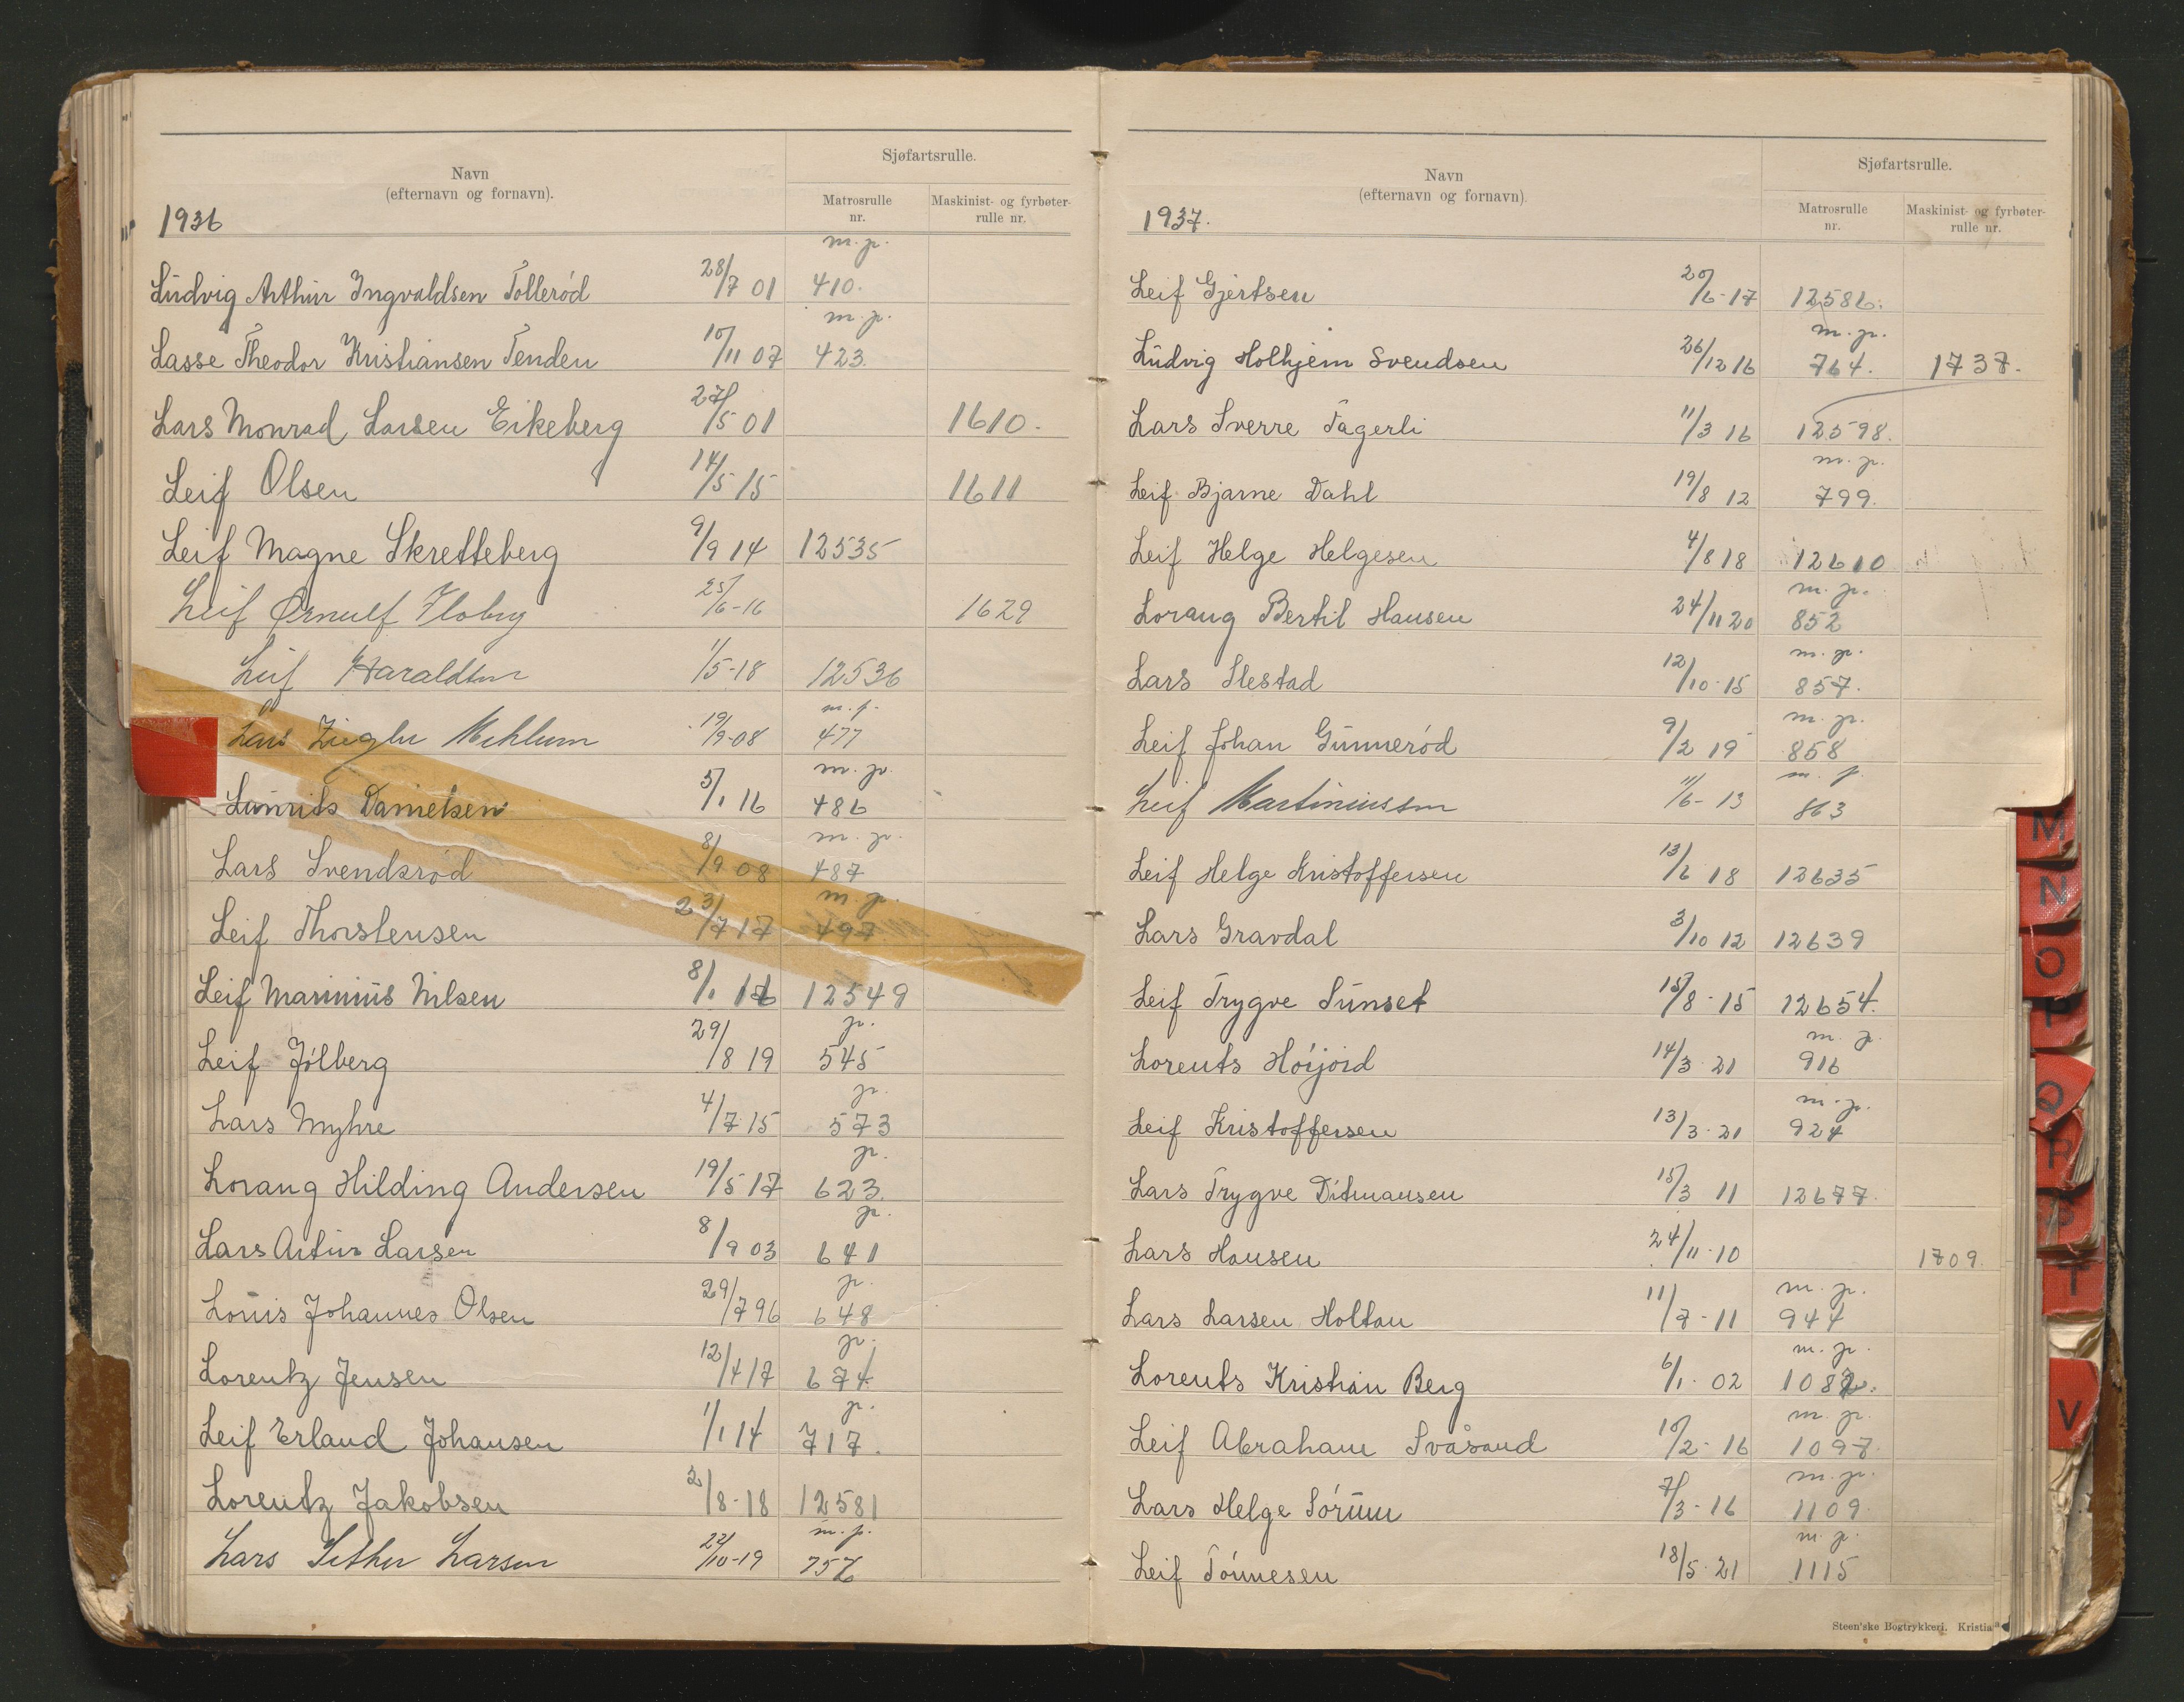 Navn
(efternavn og fornavn).
Sjøfartsrulle.
Matrosrulle nr.
Maskinist- og fyrbøter-rulle nr.
1936
Ludvig Arthur Ingvaldsen Tollerød 28/7 01 m.p. 410.
Lasse Theodor Kristiansen Tenden 10/11 07 m.p. 423.
Lars Monrad Larsen Eikeberg 27/5 01 1610.
Leif Olsen 14/5 15 1611
Leif Magne Skretteberg 9/9 14 12535
Leif Ørnulf Floby 25/6-16 1629
Leif Haraldsen 1/5-18 12536
Lars Ziegler Mehlum 19/9-08 m.p. 477
Laurits Danielsen 5/1 16 m.p. 486
Lars Svendsrød 8/9 08 m.p. 487
Leif Thorstensen 23/7 17 m.p. 497
Leif Marinius Nilsen 8/1 16 12549
Leif Jølberg 29/8 19 p. 545
Lars Myhre 4/7 15 p. 573
Lorang Hilding Andersen 19/5 17 p. 623.
Lars Artur Larsen 8/9 03 p. 641
Louis Johannes Olsen 29/7 96 p. 648
Lorentz Jensen 12/4 17 p. 674
Leif Erland Johansen 1/1 14 p. 717.
Lorentz Jakobsen 2/8-18 12581
Lars Sether Larsen 22/10-19 m.p. 756
Navn
(efternavn og fornavn).
Sjøfartsrulle.
Matrosrulle nr.
Maskinist- og fyrbøter-rulle nr.
1937.
Leif Gjertsen 20/6-17 12586.
Ludvig Holhjem Svendsen 26/12 16 m.p. 764. 1737.
Lars Sverre Fagerli 11/3 16 12598.
Leif Bjarne Dahl 19/8 12 m.p. 799.
Leif Helge Helgesen 4/8 18 12610
Lorang Bertil Hansen 24/11 20 m.p. 852
Lars Slestad 12/10-15 m.p. 857.
Leif Johan Gunnerød 9/2 19 m.p. 858
Leif Martiniussen 11/6-13 m.p. 863
Leif Helge Kristoffersen 13/6 18 12635
Lars Gravdal 3/10 12 12639
Leif Trygve Sunset 15/8-15 12654.
Lorents Høijord 14/3 21 m.p. 916
Leif Kristoffersen 13/3-21 m.p. 924
Lars Trygve Ditmansen 15/3 11 12677.
Lars Hansen 24/11-10 1709.
Lars Larsen Holtan 11/7-11 m.p. 944
Lorents Kristian Berg 6/1-02 m.p. 1082.
Leif Abraham Svåsand 10/2-16 m.p. 1097.
Lars Helge Sørum 7/3-16 m.p. 1109.
Leif Tønnesen 18/5-21 m.p. 1115
Steen'ske Bogtrykkeri. Kristia
M
N
O
P
Q
R
S
T
V